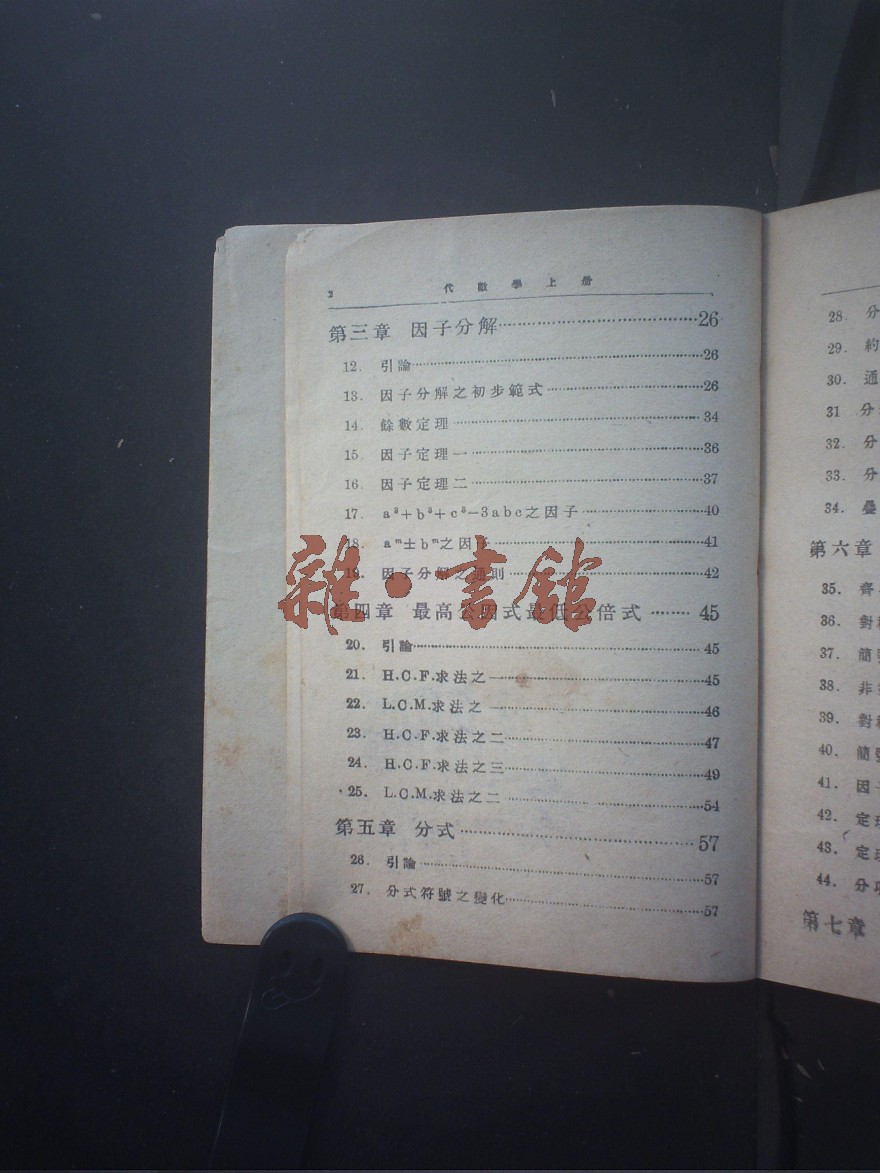 2 代數學上册
第三章 因子分解 26
12. 引論 26
13. 因子分解之初步範式 26
14. 餘數定理 34
15. 因子定理一 36
16. 因子定理二 37
17. a³+b³+c³-3abc之因子 40
18. aᵐ±bᵐ之因子 41
19. 因子分解之通則 42
雜·書館
第四章 最高公因式最低公倍式 45
20. 引論 45
21. H.C.F.求法之一 45
22. L.C.M.求法之一 46
23. H.C.F.求法之二 47
24. H.C.F.求法之三 49
25. L.C.M.求法之二 54
第五章 分式 57
26. 引論 57
27. 分式符號之變化 57
28. 分
29. 約
30. 通
31 分
32. 分
33. 分
34. 疊
第六章
35. 齊
36. 對
37. 簡
38. 非
39. 對
40. 簡
41. 因
42. 定理
43. 定理
44. 分
第七章